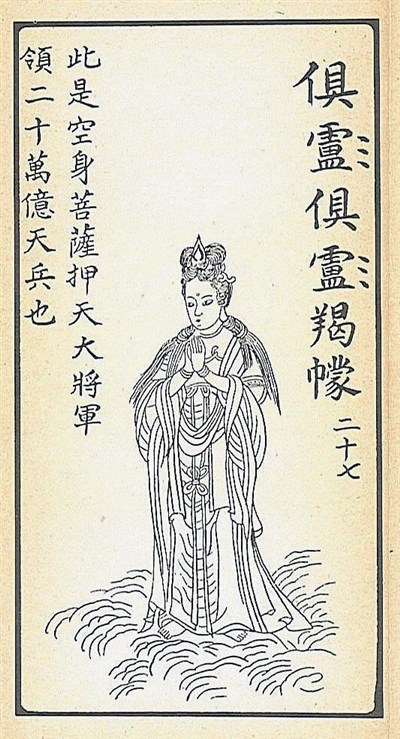 俱盧俱盧羯幪 二十七
此是空身菩薩押天大將軍
領二十萬億天兵也